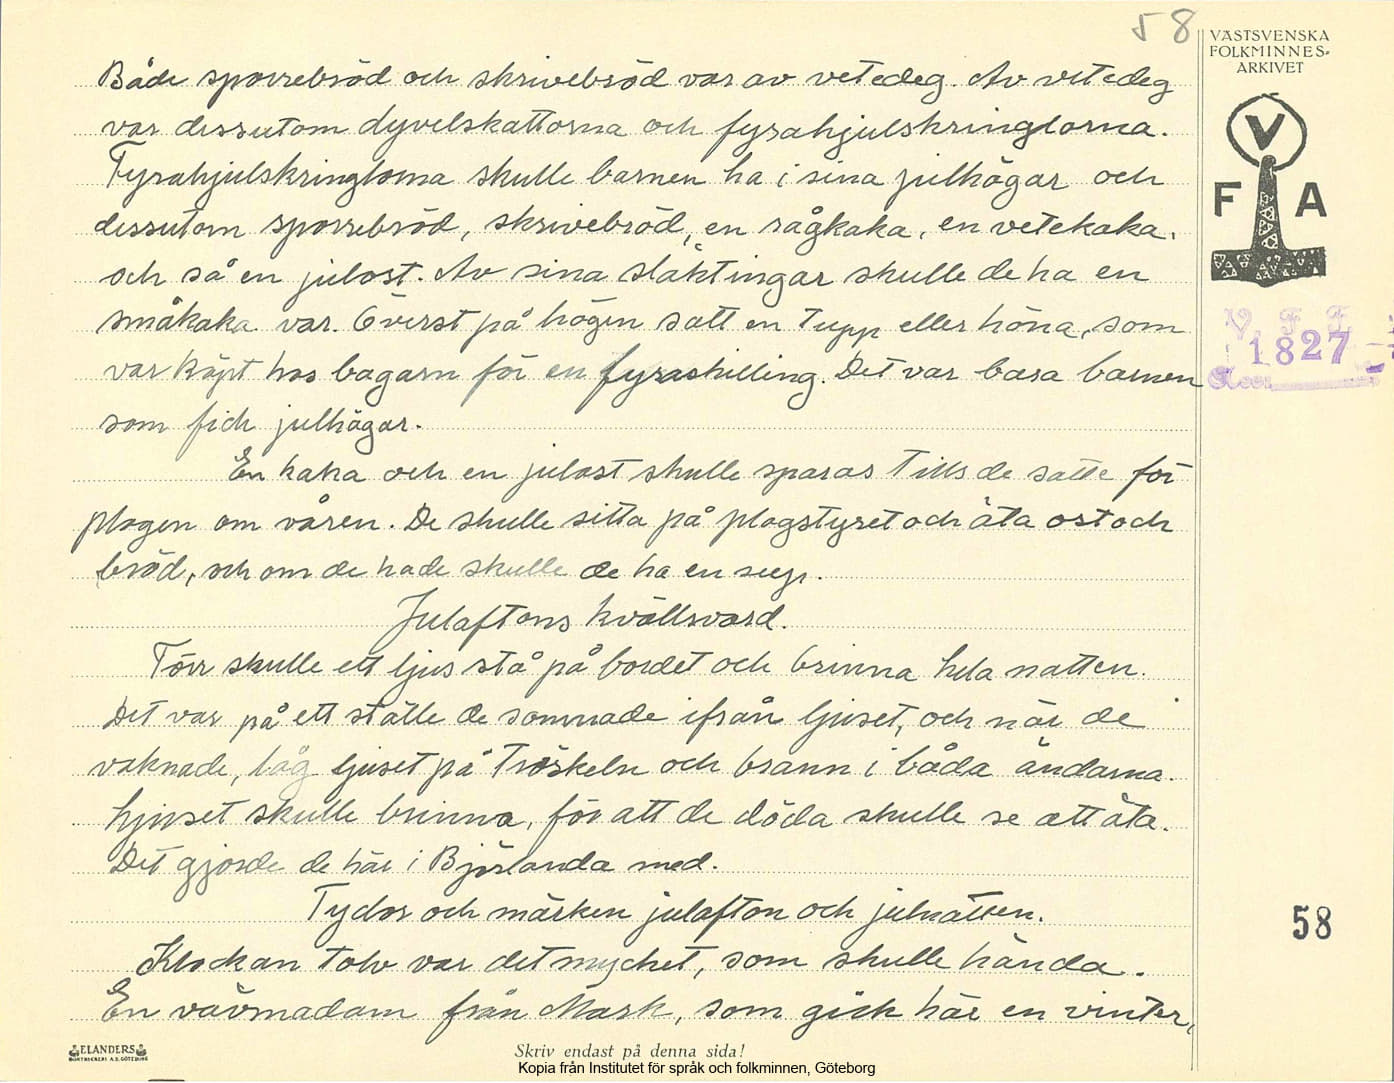 58
VÄSTSVENSKA
FOLKMINNES-
ARKIVET
V
F A
V. F. F.
1827
Både sporrebröd och skrivebröd var av vetedeg. Av vetedeg
var dessutom dyvelskattorna och fyrahjulskringlorna.
Fyrahjulskringlorna skulle barnen ha i sina julhögar och
dessutom sporrebröd, skrivebröd, en rågkaka, en vetekaka,
och så en julost. Av sina släktingar skulle de ha en
småkaka var. Överst på högen satt en tupp eller höna, som
var köpt hos bagarn för en fyraskilling. Det var bara barnen
som fick julhögar.
En kaka och en julost skulle sparas tills de satte för
plogen om våren. De skulle sitta på plogstyret och äta ost och
bröd, och om de hade skulle de ha en sup.
Julaftons kvällsvard.
Förr skulle ett ljus stå på bordet och brinna hela natten.
Det var på ett ställe de somnade ifrån ljuset, och när de
vaknade, låg ljuset på tröskeln och brann i båda ändarna.
Ljuset skulle brinna, för att de döda skulle se att äta.
Det gjorde de här i Björlanda med.
Tydor och märken julafton och julnatten.
Klockan tolv var det mycket, som skulle hända.
En vävmadam från Mark, som gick här en vinter,
58
ELANDERS
BOKTRYCKERI A.B. GÖTEBORG
Skriv endast på denna sida!
Kopia från Institutet för språk och folkminnen, Göteborg